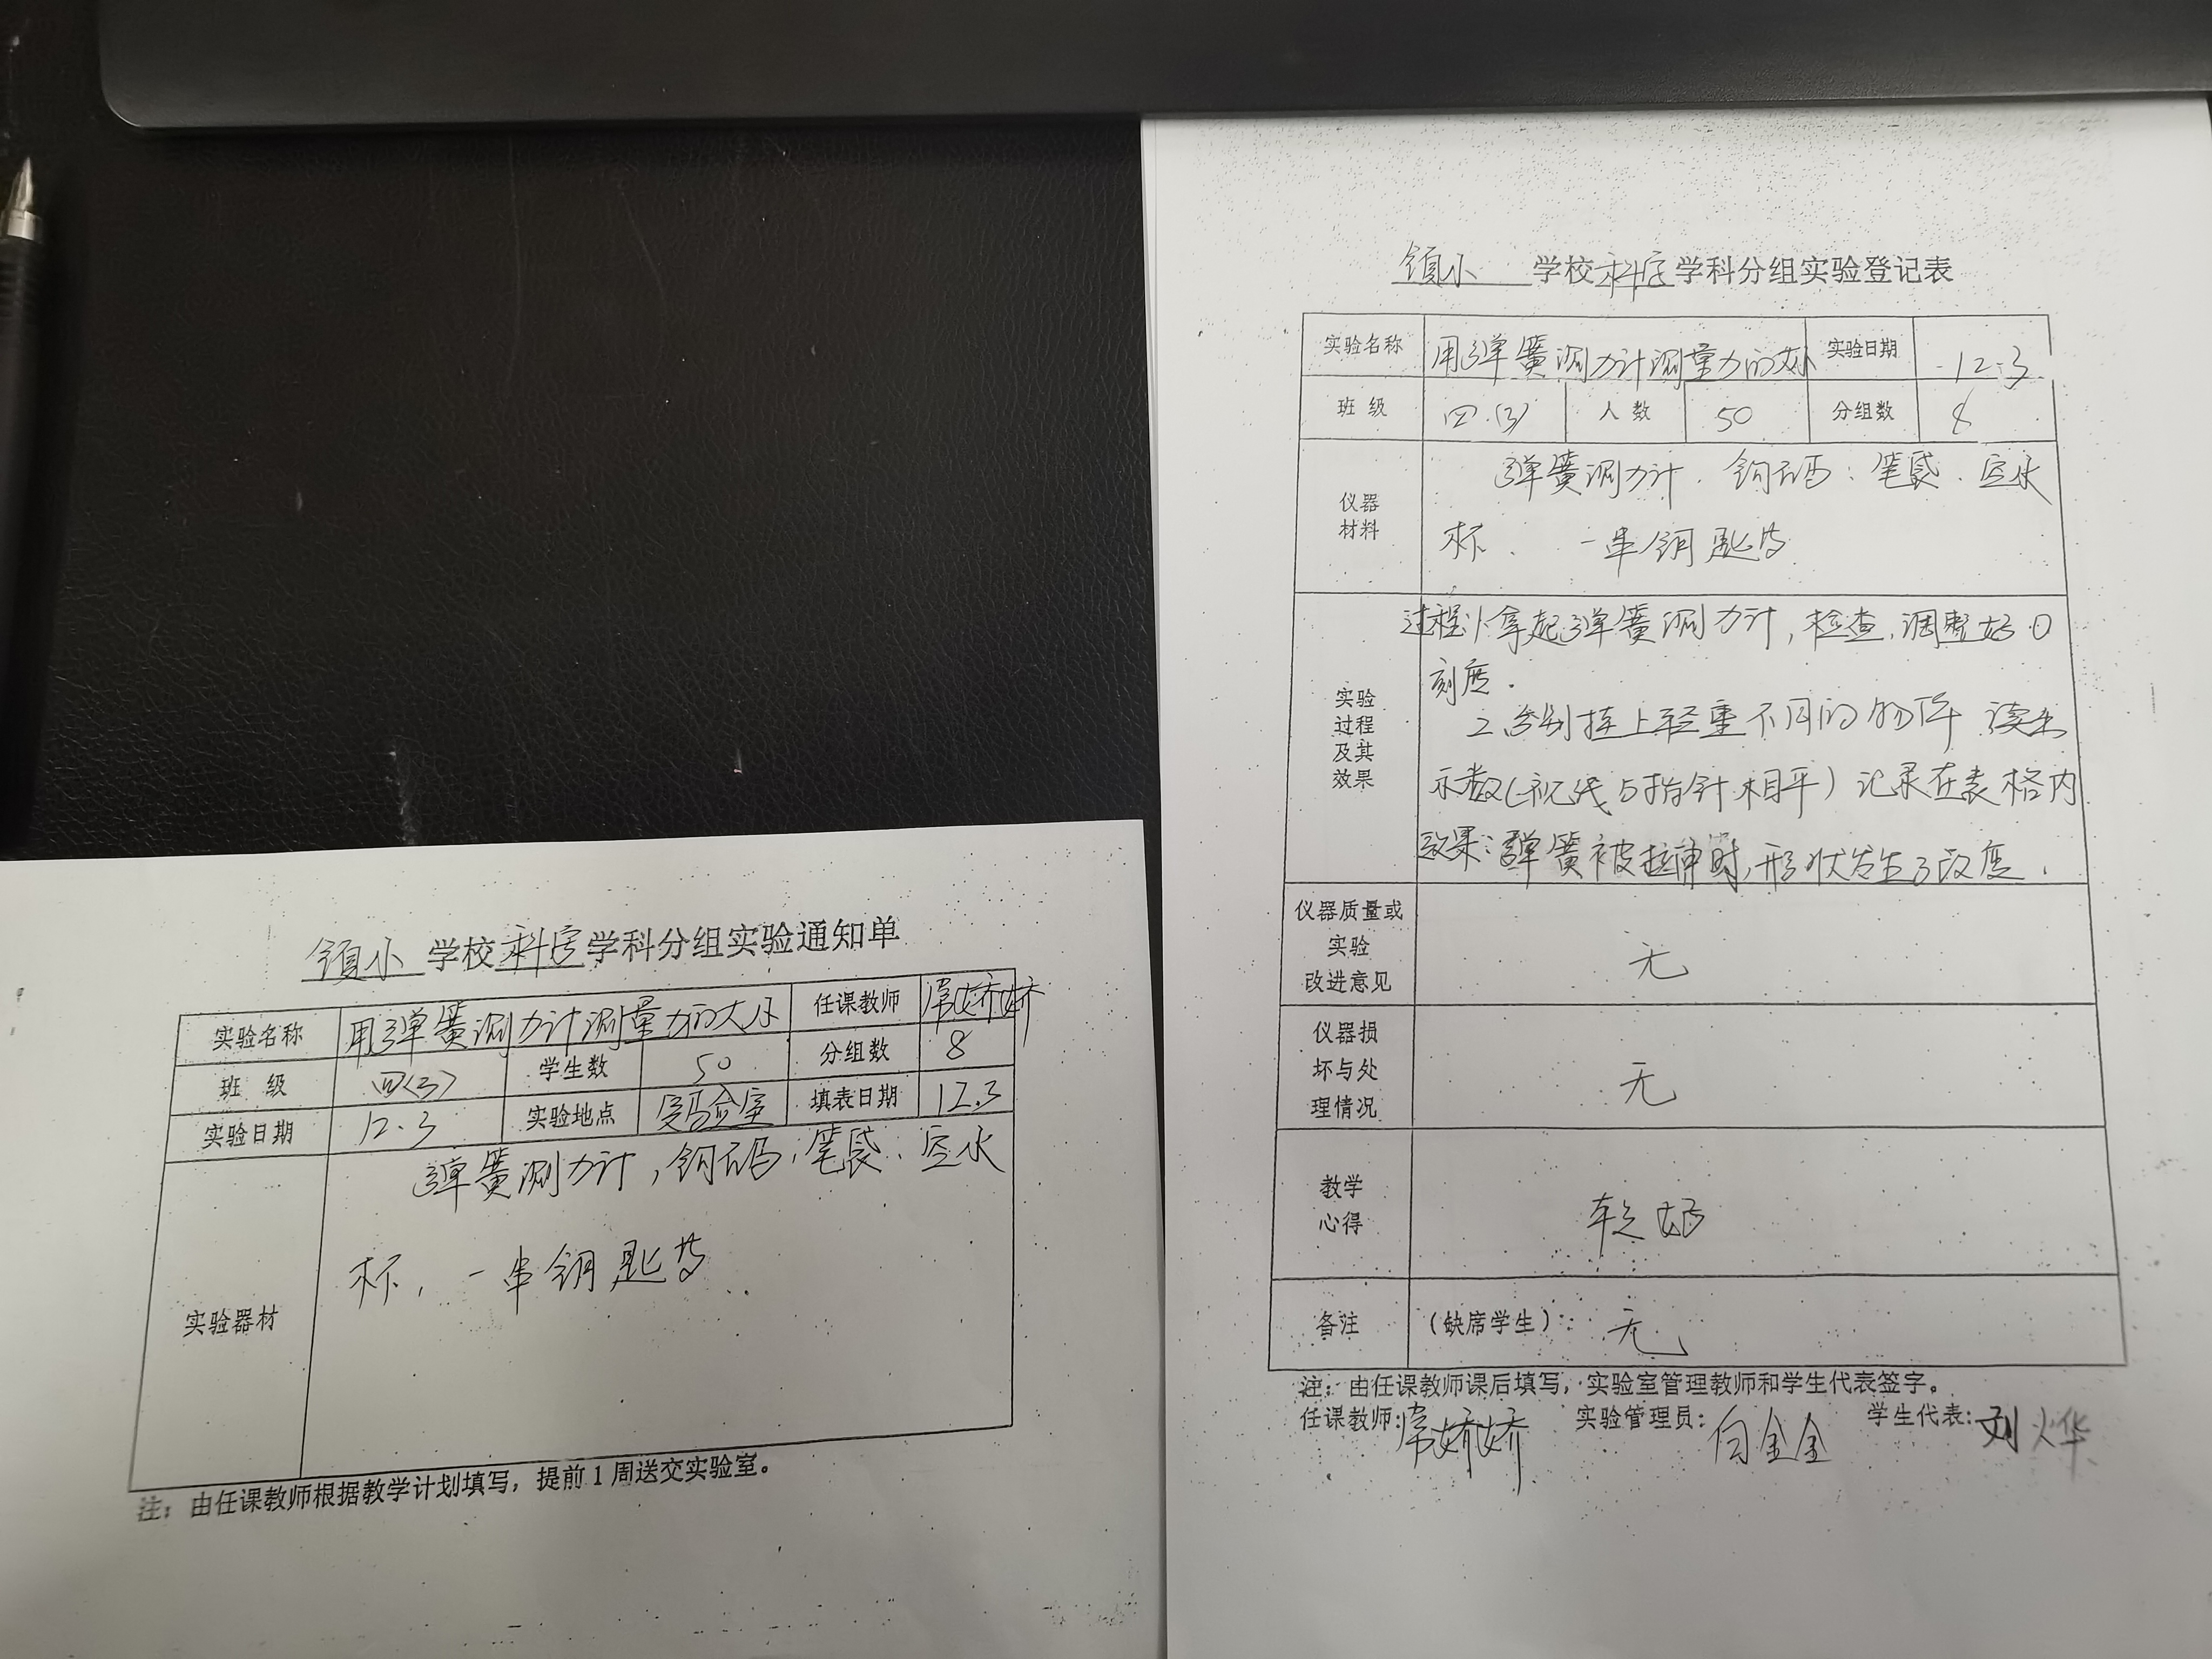 镇小 学校科学学科分组实验通知单
实验名称 用弹簧测力计测量力的大小 任课教师 常娇娇
班 级 四(3) 学生数 50 分组数 8
实验日期 12.3 实验地点 实验室 填表日期 12.3
实验器材
弹簧测力计,钩码、笔袋、空水
杯、一串钥匙等
注：由任课教师根据教学计划填写，提前1周送交实验室。
镇小 学校科学学科分组实验登记表
实验名称 用弹簧测力计测量力的大小 实验日期 12.3
班 级 四.(3) 人 数 50 分组数 8
仪器
材料
弹簧测力计、钩码、笔袋、空水
杯、一串钥匙等
实验
过程
及其
效果
过程:1.拿起弹簧测力计,检查,调整好0
刻度.
2.分别挂上轻重不同的物体 读出
示数(视线与指针相平)记录在表格内
效果:弹簧被拉伸时,形状发生了改变.
仪器质量或
实验
改进意见
无
仪器损
坏与处
理情况
无
教学
心得
较好
备注 (缺席学生)： 无
注：由任课教师课后填写，实验室管理教师和学生代表签字。
任课教师:常娇娇 实验管理员:白金金 学生代表:刘烨